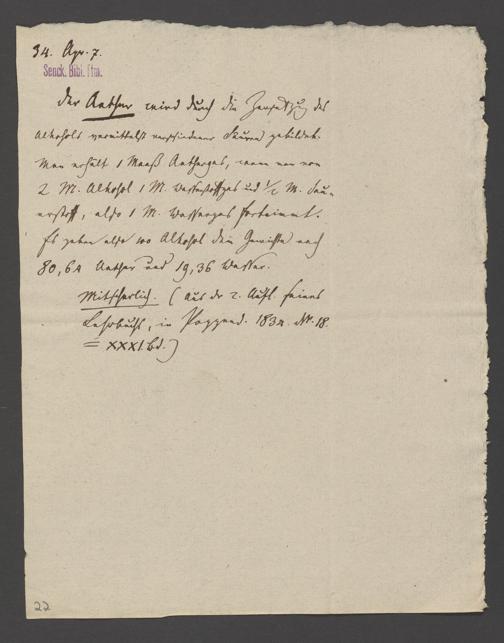 34. Apr. 7.
Senck. Bibl. Ffm.
Der Aether wird durch die Zersetzung des
Alkohols vermittelst verschiedener Säuren gebildet.
Man erhält 1 Maaß Aethergas, wenn man von
2 M. Alkohol 1 M. Wasserstoffgas und 1/2 M. Sau-
erstoff, also 1 M. Wassergas fortnimmt.
Es geben also 100 Alkohol dem Gewichte nach
80,64 Aether und 19,36 Wasser.
Mitscherlich. (Aus dr 2. Aufl. seines
Lehrbuchs, in Poggend. 1834. Nr. 18.
= XXXI. Bd.)
22